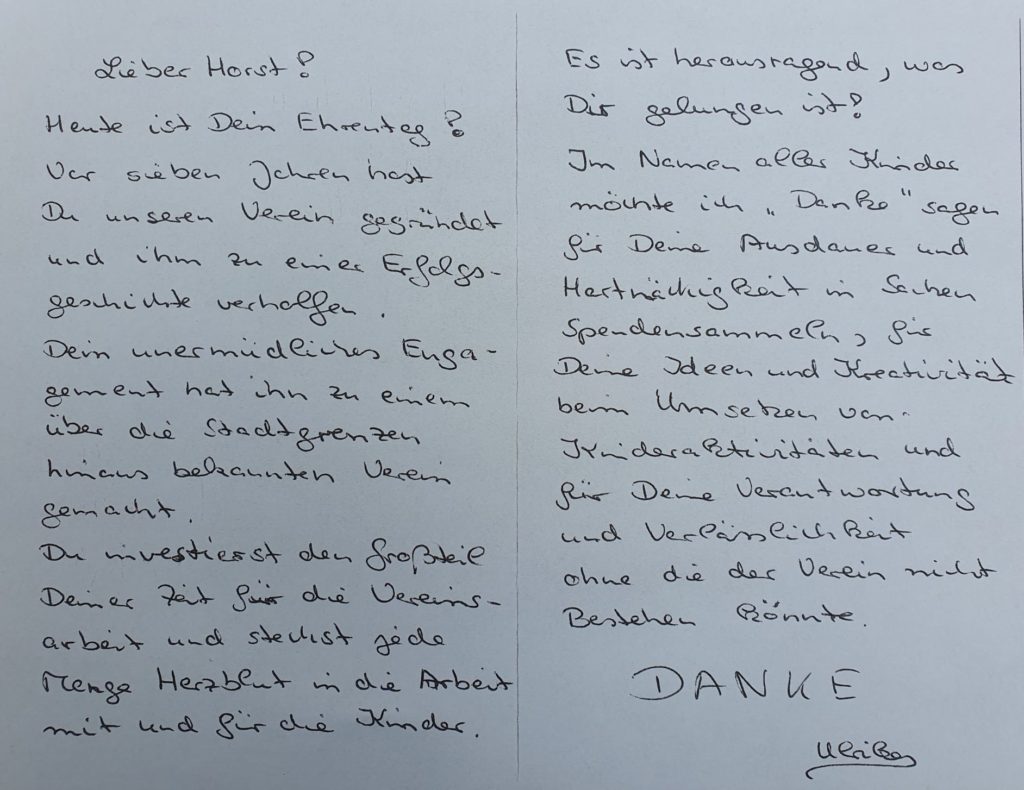 Lieber Horst!
Heute ist Dein Ehrentag!
Vor sieben Jahren hast
Du unseren Verein gegründet
und ihm zu einer Erfolgs-
geschichte verholfen.
Dein unermüdliches Enga-
gement hat ihn zu einem
über die Stadtgrenzen
hinaus bekannten Verein
gemacht.
Du investierst den Großteil
Deiner Zeit für die Vereins-
arbeit und steckst jede
Menge Herzblut in die Arbeit
mit und für die Kinder.
Es ist herausragend, was
Dir gelungen ist!
Im Namen aller Kinder
möchte ich „Danke“ sagen
für Deine Ausdauer und
Hartnäckigkeit in Sachen
Spendensammeln, für
Deine Ideen und Kreativität
beim Umsetzen von
Kinderaktivitäten und
für Deine Verantwortung
und Verlässlichkeit
ohne die der Verein nicht
Bestehen könnte.
DANKE
Ulrike